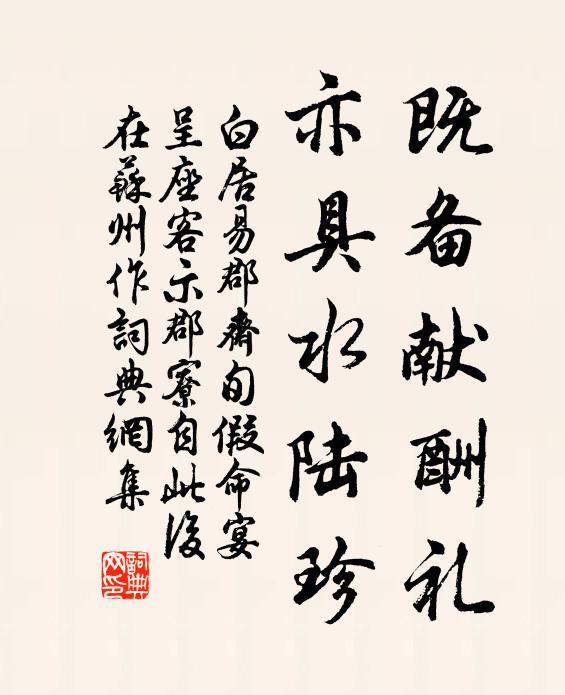 既备献酬礼
亦具水陆珍
白居易郡齋旬假命宴
呈座客示郡寮自此後
在蘇州作詞典網集
詞典网印